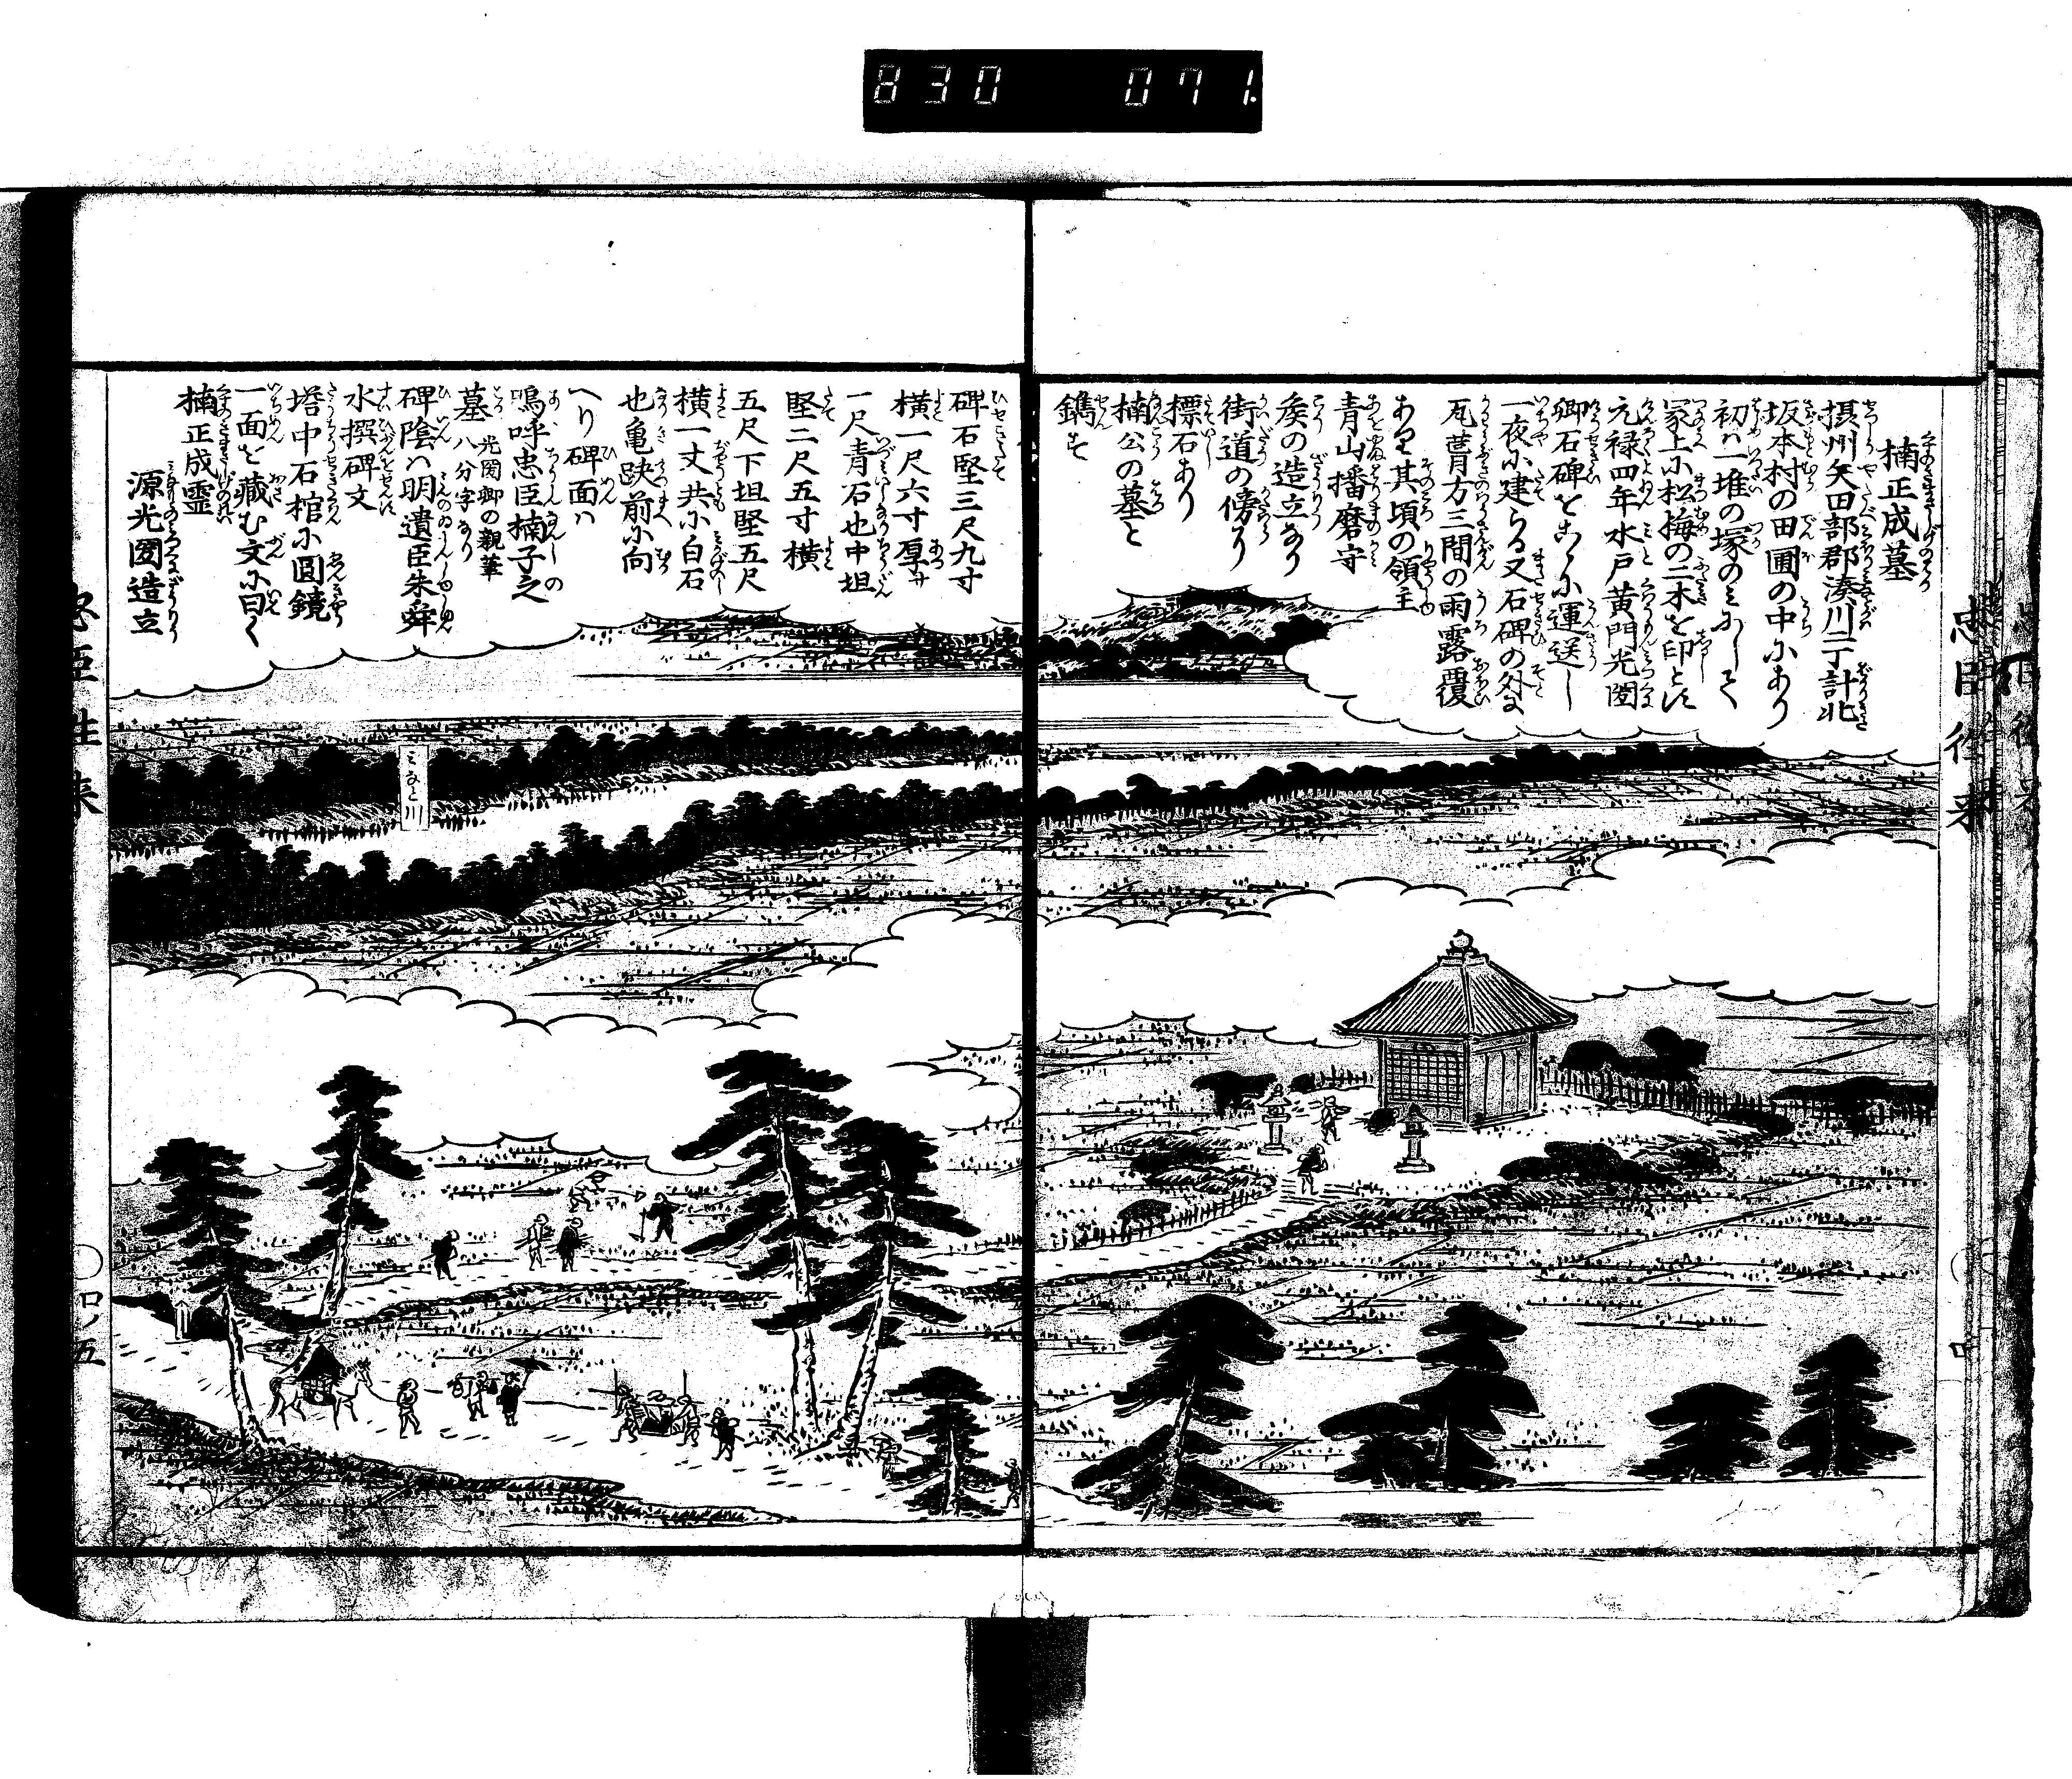 830 071.
楠正成墓
摂州矢田部郡湊川二丁計北
坂本村の田圃の中にあり
初ハ一堆の塚のミにして
冢上に松梅の二木を印とす
元禄四年水戸黄門光圀
卿石碑をこゝに運送し
一夜に建らる又石碑の外に
瓦葺方三間の雨露覆
あり其頃の領主
青山播磨守
矦の造立なり
街道の傍に
標石あり
楠公の墓と
鐫す
碑石竪三尺九寸
横一尺六寸厚サ
一尺青石也中坦
竪二尺五寸横
五尺下坦竪五尺
横一丈共に白石
也亀趺前に向
へり碑面ハ
嗚呼忠臣楠子之
墓 光圀卿の親筆八分字なり
碑陰ハ明遺臣朱舜
水撰碑文
塔中石棺に圓鏡
一面を藏む文に曰く
楠正成霊
源光圀造立
ミなと川
忠臣往来
四五